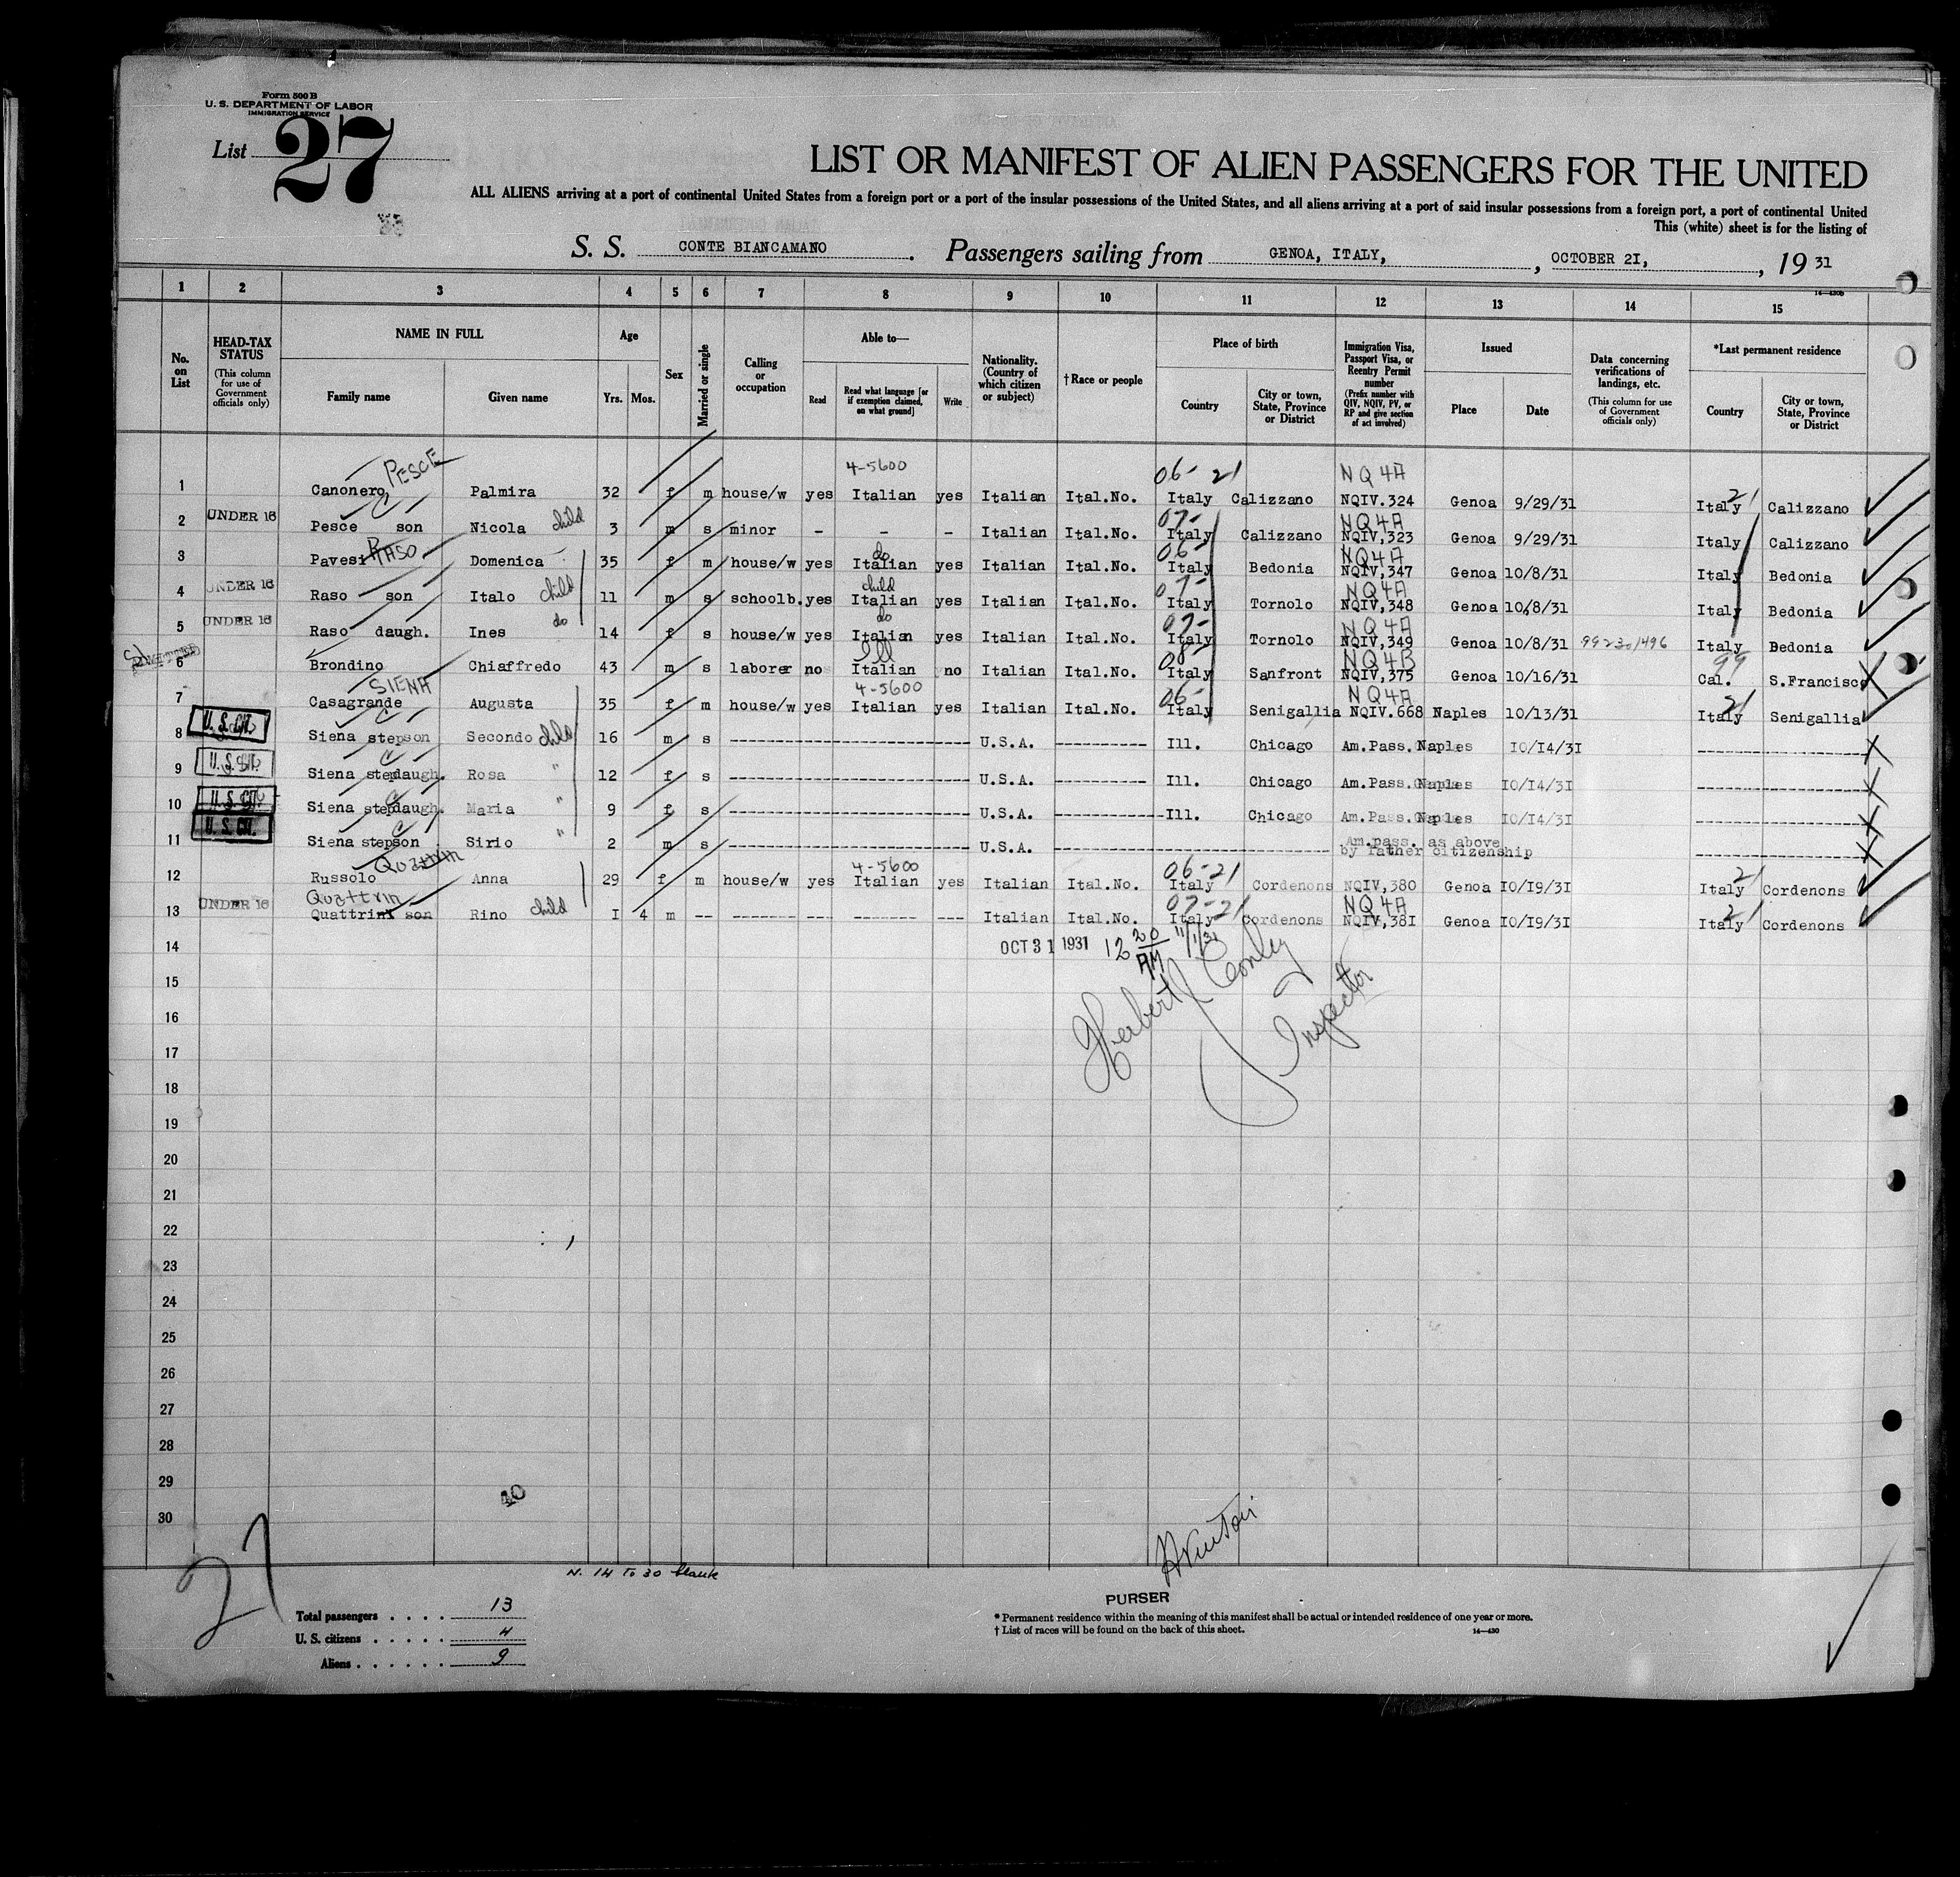 Form 500 B
U. S. DEPARTMENT OF LABOR
IMMIGRATION SERVICE
List 27
LIST OR MANIFEST OF ALIEN PASSENGERS FOR THE UNITED
ALL ALIENS arriving at a port of continental United States from a foreign port or a port of the insular possessions of the United States, and all aliens arriving at a port of said insular possessions from a foreign port, a port of continental United
This (white) sheet is for the listing of
S. S. CONTE BIANCAMANO. Passengers sailing from GENOA, ITALY, , OCTOBER 2I, , 19 31
14—430B
1 2 3 4 5 6 7 8 9 10 11 12 13 14 15
No. on List
HEAD-TAX STATUS
(This column for use of Government officials only)
NAME IN FULL
Family name Given name
Age
Yrs. Mos.
Sex
Married or single
Calling or occupation
Able to—
Read
Read what language [or if exemption claimed, on what ground]
Write
Nationality. (Country of which citizen or subject)
†Race or people
Place of birth
Country
City or town, State, Province or District
Immigration Visa, Passport Visa, or Reentry Permit number
(Prefix number with QIV, NQIV, PV, or RP and give section of act involved)
Issued
Place Date
Data concerning verifications of landings, etc.
(This column for use of Government officials only)
*Last permanent residence
Country
City or town, State, Province or District
PESCE 4-5600 06- 21 NQ4A
1 Canonero, Palmira 32 f m house/w yes Italian yes Italian Ital.No. Italy Calizzano NQIV.324 Genoa 9/29/31 Italy 21 Calizzano
2 UNDER 16 Pesce son Nicola child 3 m s minor - - - Italian Ital.No. 07- Italy Calizzano NQ4A NQIV,323 Genoa 9/29/31 Italy Calizzano
3 Pavesi RASO Domenica 35 f m house/w yes do Italian yes Italian Ital.No. 06- Italy Bedonia NQ4A NQIV,347 Genoa 10/8/31 Italy Bedonia
4 UNDER 16 Raso son Italo child 11 m s schoolb. yes child Italian yes Italian Ital.No. 07- Italy Tornolo NQ4A NQIV,348 Genoa 10/8/31 Italy Bedonia
5 UNDER 16 Raso daugh. Ines do 14 f s house/w yes do Italian yes Italian Ital.No. 07- Italy Tornolo NQ4A NQIV,349 Genoa 10/8/31 99230/496 Italy Bedonia
6 Brondino Chiaffredo 43 m s laborer no Ill Italian no Italian Ital.No. 08- Italy Sanfront NQ4B NQIV,375 Genoa 10/16/31 99 Cal. S.Francisco
7 Casagrande SIENA Augusta 35 f m house/w yes 4-5600 Italian yes Italian Ital.No. 06- Italy Senigallia NQ4A NQIV.668 Naples 10/13/31 21 Italy Senigallia
8 U.S.CIT. Siena stepson Secondo child 16 m s U.S.A. Ill. Chicago Am.Pass. Naples IO/I4/3I
9 U.S.CIT. Siena stepdaugh. Rosa " 12 f s U.S.A. Ill. Chicago Am.Pass. Naples IO/I4/3I
10 U.S.CIT. Siena stepdaugh. Maria " 9 f s U.S.A. Ill. Chicago Am.Pass. Naples IO/I4/3I
11 U.S.CIT. Siena stepson Sirio " 2 m s U.S.A. Am.pass. as above
by father citizenship
12 Russolo Quattrin Anna 29 f m house/w yes 4-5600 Italian yes Italian Ital.No. 06-21 Italy Cordenons NQIV,380 Genoa IO/I9/3I 21 Italy Cordenons
13 UNDER 16 Quattrin Quattrini son Rino child I 4 m -- Italian Ital.No. 07-21 Italy Cordenons NQ4A NQIV,38I Genoa IO/I9/3I 21 Italy Cordenons
14 OCT 31 1931 12 20 AM 11/1/31
15
16 Herbert Conly
Inspector
17
18
19
20
21
22
23
24
25
26
27
28
29
30
40
27
N. 14 to 30 blank
Total passengers . . . . 13
U. S. citizens . . . . . 4
Aliens . . . . . . 9
PURSER
* Permanent residence within the meaning of this manifest shall be actual or intended residence of one year or more.
† List of races will be found on the back of this sheet.
14—430